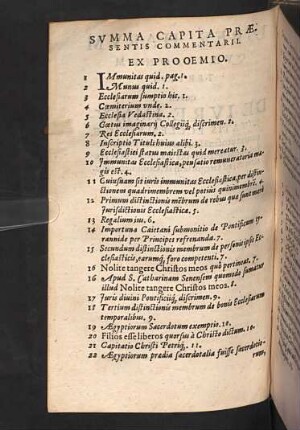 SVMMA CAPITA PRÆ-
SENTIS COMMENTARII.
EX PROOEMIO.
1 IMmunitas quid. pag. 1.
2 Munus quid. 1.
3 Ecclesiarum sumptio hic. 2.
4 Cœmiterium vnde. 2.
5 Ecclesia Vedastina. 2.
6 Cœtus imaginarij Collegiiq́; discrimen. 2.
7 Res Ecclesiarum. 2.
8 Inscriptio Tituli huius alibi. 3.
9 Ecclesiastici status maiestas quid mereatur. 3.
10 Immunitas Ecclesiastica, pensatio remuneratoria ma-
gis est. 4.
11 Cuiusnam sit iuris immunitas Ecclesiastica per distin-
ctionem quadrimembrem vel potius quinimembri. 4.
12 Primum distinctionis mẽbrum de rebus quæ sunt merè
Jurisdictionis Ecclesiasticæ. 5.
13 Regalium ius. 6.
14 Importuna Caietani submonitio de Pontificum ty-
rannide per Principes refrenanda. 7.
15 Secundum distinctionis membrum de personis ipsis Ec-
clesiasticis, earumq́; foro competenti. 7.
16 Nolite tangere Christos meos quò pertineat. 7.
16 Apud S. Catharinam Senensem quomodo sumatur
illud Nolite tangere Christos meos. 8.
17 Juris diuini Pontificiiq́; discrimen. 9.
18 Tertium distinctionis membrum de bonis Ecclesiarum
temporalibus. 9.
19 Ægyptiorum Sacerdotum exemptio. 10.
20 Filios esse liberos quorsus à Christo dictum. 10.
21 Capitatio Christi Petriq́;. 11.
22 Ægyptiorum prædia sacerdotalia fuisse sacerdoto-
rum,